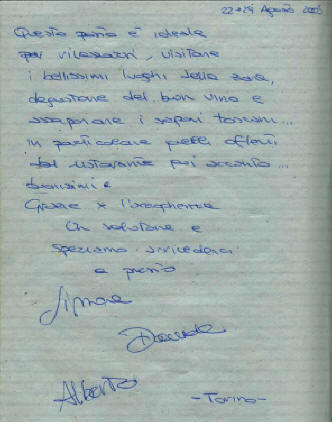 22-24 Agosto
Questo posto è ideale
per rilassarsi, visitare
i bellissimi luoghi della zona,
degustare del buon vino e
assaporare i sapori toscani...
in particolare quelli offerti
dal ristorante qui accanto...
buonissimi e
Grazie x l'accoglienza
Un salutone e
speriamo rivederci
a presto
Simone
Davide
Alberto
- Torino -